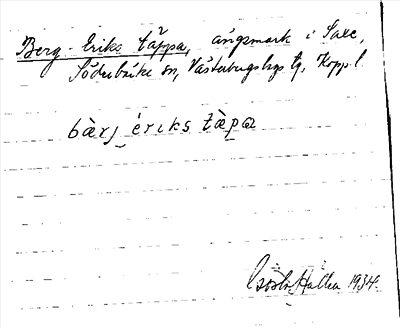 Berg-Eriks täppa, ängsmark i Saxe,
Söderbärke sn, Västerbergslags tg, Kopp. l.
bàrj ériks tàpa
Hallen 1934.